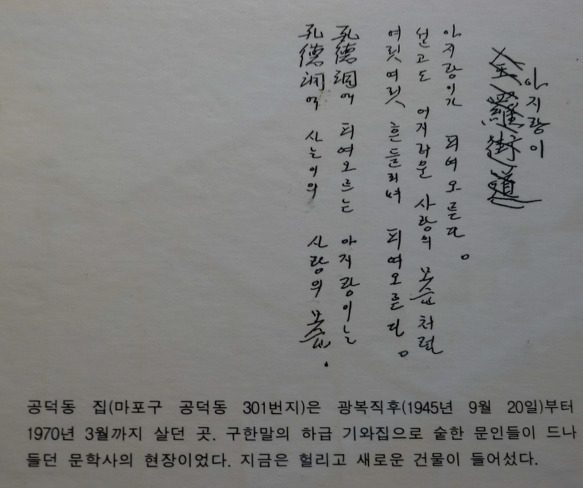 아지랑이
全羅街道
아지랑이가 피여오른다。
섧고도 어지러운 사랑의 모습처럼
여릿여릿 흔들리며 피여오른다。
孔德洞에 피여오르는 아지랑이는
孔德洞에 사는이의 사랑의 모습.
공덕동 집(마포구 공덕동 301번지)은 광복직후(1945년 9월 20일)부터
1970년 3월까지 살던 곳. 구한말의 하급 기와집으로 숱한 문인들이 드나
들던 문학사의 현장이었다. 지금은 헐리고 새로운 건물이 들어섰다.